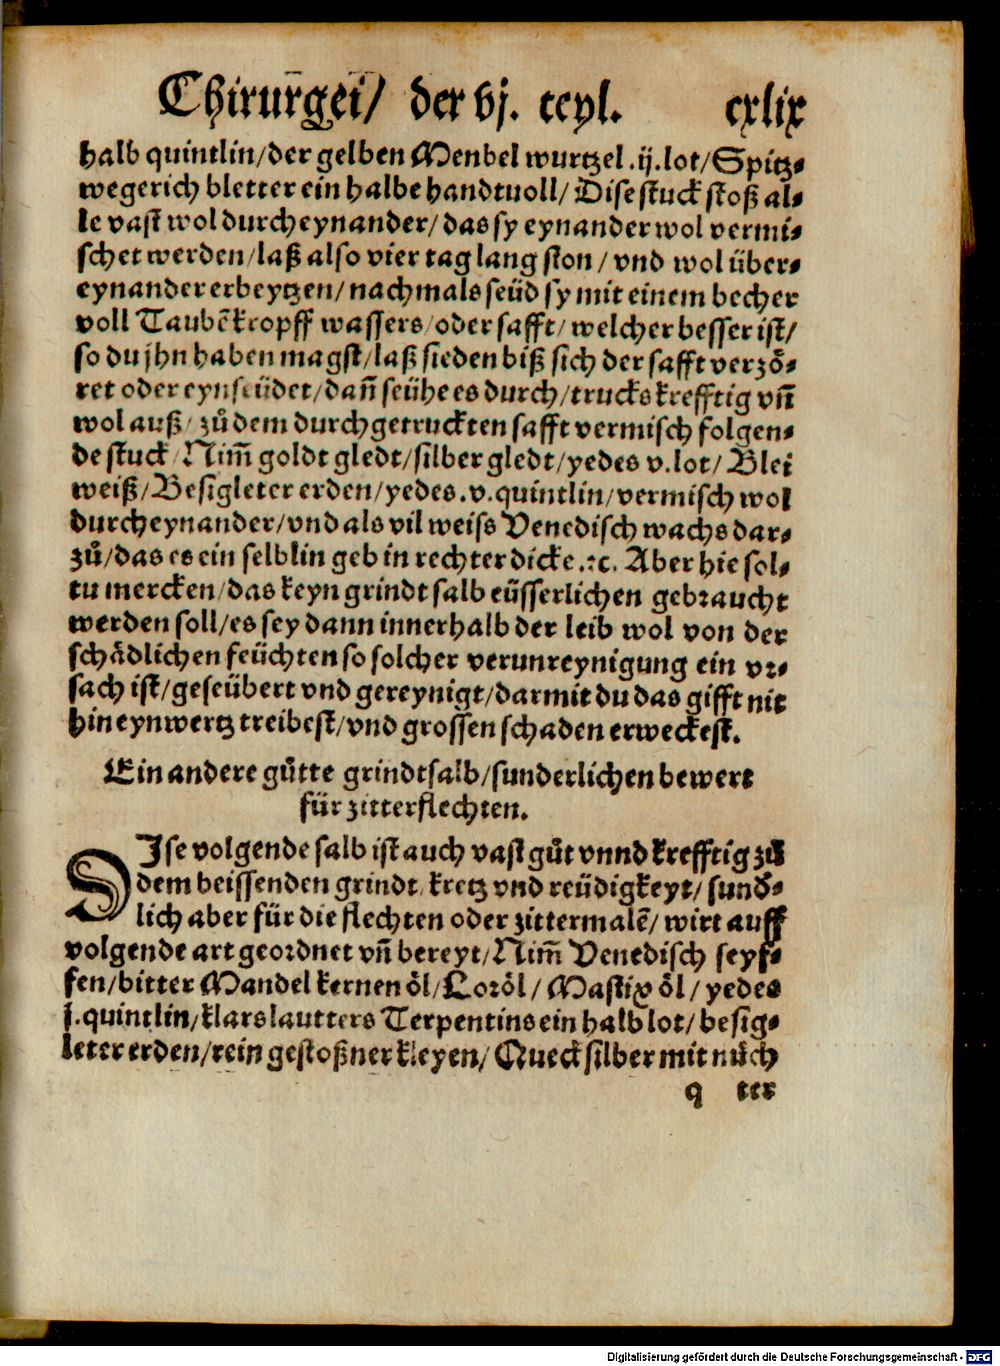 Chirurgei/ der vj. teyl. cxlix
halb quintlin/der gelben Menbel wurtzel .ij. lot/Spitz⸗
wegerich bletter ein halbe handtuoll/ Dise stuck stoß al⸗
le vast wol durch eynander/ das sy eynander wol vermi⸗
schet werden/laß also vier tag lang ston/ vnd wol über⸗
eynander erbeytzen/ nachmals seüd sy mit einem becher
voll Taubēkropff wassers/oder safft/ welcher besser ist/
so du jhn haben magst/laß sieden biß sich der safft verzö⸗
ret oder eynseüdet/dañ seühe es durch/trucks krefftig vñ
wol auß/ zů dem durchgetruckten safft vermisch folgen⸗
de stuck/Nim̃ goldt gledt/silber gledt/yedes v.lot/ Blei
weiß/Besigleter erden/yedes .v.quintlin/vermisch wol
durcheynander/vnd als vil weiss Venedisch wachs dar⸗
zů/das es ein selblin geb in rechter dicke .⁊c. Aber hie sol⸗
tu mercken/das keyn grindt salb eüsserlichen gebraucht
werden soll/es sey dann innerhalb der leib wol von der
schådlichen feüchten so solcher verunreynigung ein vr⸗
sach ist/geseübert vnd gereynigt/darmit du das gifft nit
hineynwertz treibest/vnd grossen schaden erweckest.
Ein andere gůtte grindtsalb/sunderlichen bewert
für zitterflechten.
DIse volgende salb ist auch vast gůt vnnd krefftig zů
dem beissenden grindt/kretz vnd reüdigkeyt/sund⸗
lich aber für die flechten oder zittermalē/ wirt auff
volgende art geordnet vñ bereyt/Nim̃ Venedisch seyf⸗
fen/bitter Mandel kernen öl/Loröl/ Mastix öl/ yedes
j.quintlin/klars lautters Terpentins ein halb lot/ besig⸗
leter erden/rein gestoßner kleyen/ Quecksilber mit nůch
q ter
Digitalisierung gefördert durch die Deutsche Forschungsgemeinschaft - DFG